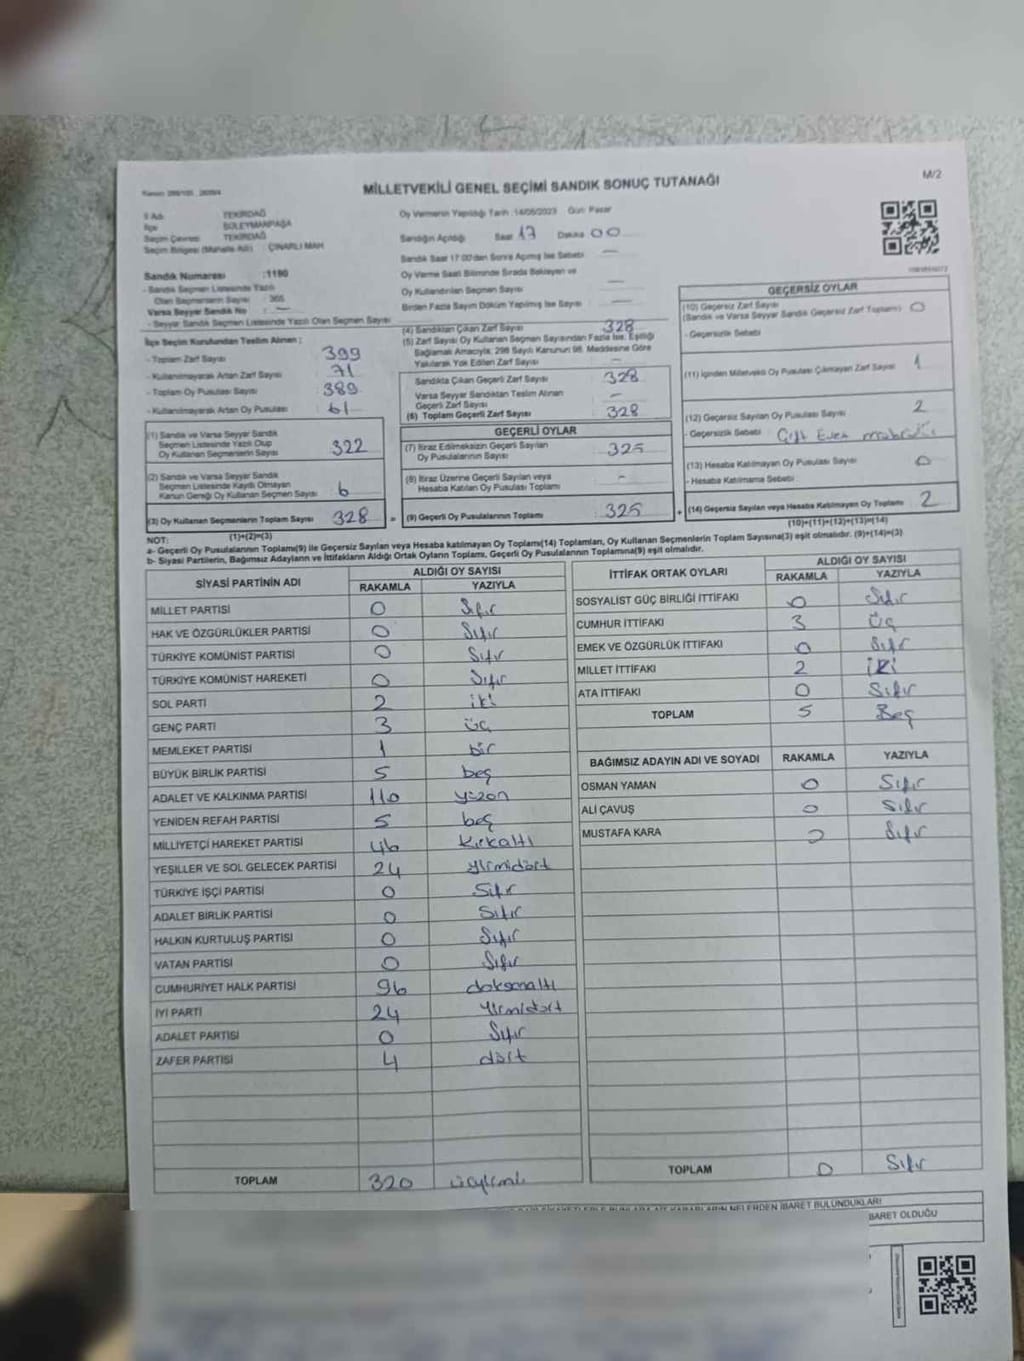 M/2
MİLLETVEKİLİ GENEL SEÇİMİ SANDIK SONUÇ TUTANAĞI
İl Adı TEKİRDAĞ
İlçe SÜLEYMANPAŞA
Seçim Çevresi TEKİRDAĞ
Seçim Bölgesi (Mahalle Adı) ÇINARLI MAH
Oy Vermenin Yapıldığı Tarih :14/05/2023 Gün: Pazar
Sandığın Açıldığı Saat 17 Dakika 00
Sandık Saat 17:00'den Sonra Açılmış İse Sebebi —
Oy Verme Saati Bitiminde Sırada Bekleyen ve
Oy Kullandırılan Seçmen Sayısı —
Birden Fazla Sayım Döküm Yapılmış İse Sayısı —
Sandık Numarası :1190
- Sandık Seçmen Listesinde Yazılı
Olan Seçmenlerin Sayısı : 365
Varsa Seyyar Sandık No : —
- Seyyar Sandık Seçmen Listesinde Yazılı Olan Seçmen Sayısı
İlçe Seçim Kurulundan Teslim Alınan :
- Toplam Zarf Sayısı 399
- Kullanılmayarak Artan Zarf Sayısı 71
- Toplam Oy Pusulası Sayısı 389
- Kullanılmayarak Artan Oy Pusulası 61
(1) Sandık ve Varsa Seyyar Sandık
Seçmen Listesinde Yazılı Olup
Oy Kullanan Seçmenlerin Sayısı 322
(2) Sandık ve Varsa Seyyar Sandık
Seçmen Listesinde Kayıtlı Olmayan
Kanun Gereği Oy Kullanan Seçmen Sayısı 6
(3) Oy Kullanan Seçmenlerin Toplam Sayısı 328
(1)+(2)=(3)
(4) Sandıktan Çıkan Zarf Sayısı 328
(5) Zarf Sayısı Oy Kullanan Seçmen Sayısından Fazla İse, Eşitliği
Sağlamak Amacıyla, 298 Sayılı Kanunun 98. Maddesine Göre
Yakılarak Yok Edilen Zarf Sayısı —
Sandıkta Çıkan Geçerli Zarf Sayısı 328
Varsa Seyyar Sandıktan Teslim Alınan
Geçerli Zarf Sayısı —
(6) Toplam Geçerli Zarf Sayısı 328
GEÇERLİ OYLAR
(7) İtiraz Edilmeksizin Geçerli Sayılan
Oy Pusulalarının Sayısı 325
(8) İtiraz Üzerine Geçerli Sayılan veya
Hesaba Katılan Oy Pusulası Toplamı -
= (9) Geçerli Oy Pusulalarının Toplamı 325
GEÇERSİZ OYLAR
(10) Geçersiz Zarf Sayısı
(Sandık ve Varsa Seyyar Sandık Geçersiz Zarf Toplamı) 0
- Geçersizlik Sebebi
(11) İçinden Milletvekili Oy Pusulası Çıkmayan Zarf Sayısı 1
(12) Geçersiz Sayılan Oy Pusulası Sayısı 2
- Geçersizlik Sebebi Çift Evet
(13) Hesaba Katılmayan Oy Pusulası Sayısı 0
- Hesaba Katılmama Sebebi
+ (14) Geçersiz Sayılan veya Hesaba Katılmayan Oy Toplamı 2
(10)+(11)+(12)+(13)=(14)
NOT:
a- Geçerli Oy Pusulalarının Toplamı(9) ile Geçersiz Sayılan veya Hesaba katılmayan Oy Toplamı(14) Toplamları, Oy Kullanan Seçmenlerin Toplam Sayısına(3) eşit olmalıdır. (9)+(14)=(3)
b- Siyasi Partilerin, Bağımsız Adayların ve İttifakların Aldığı Ortak Oyların Toplamı, Geçerli Oy Pusulalarının Toplamına(9) eşit olmalıdır.
SİYASİ PARTİNİN ADI ALDIĞI OY SAYISI
RAKAMLA YAZIYLA
MİLLET PARTİSİ 0 Sıfır
HAK VE ÖZGÜRLÜKLER PARTİSİ 0 Sıfır
TÜRKİYE KOMÜNİST PARTİSİ 0 Sıfır
TÜRKİYE KOMÜNİST HAREKETİ 0 Sıfır
SOL PARTİ 2 iki
GENÇ PARTİ 3 üç
MEMLEKET PARTİSİ 1 bir
BÜYÜK BİRLİK PARTİSİ 5 beş
ADALET VE KALKINMA PARTİSİ 110 yüzon
YENİDEN REFAH PARTİSİ 5 beş
MİLLİYETÇİ HAREKET PARTİSİ 46 kırkaltı
YEŞİLLER VE SOL GELECEK PARTİSİ 24 yirmidört
TÜRKİYE İŞÇİ PARTİSİ 0 Sıfır
ADALET BİRLİK PARTİSİ 0 Sıfır
HALKIN KURTULUŞ PARTİSİ 0 Sıfır
VATAN PARTİSİ 0 Sıfır
CUMHURİYET HALK PARTİSİ 96 doksanaltı
İYİ PARTİ 24 yirmidört
ADALET PARTİSİ 0 Sıfır
ZAFER PARTİSİ 4 dört
TOPLAM 320 üçyirmi
İTTİFAK ORTAK OYLARI ALDIĞI OY SAYISI
RAKAMLA YAZIYLA
SOSYALİST GÜÇ BİRLİĞİ İTTİFAKI 0 Sıfır
CUMHUR İTTİFAKI 3 Üç
EMEK VE ÖZGÜRLÜK İTTİFAKI 0 Sıfır
MİLLET İTTİFAKI 2 İKİ
ATA İTTİFAKI 0 Sıfır
TOPLAM 5 Beş
BAĞIMSIZ ADAYIN ADI VE SOYADI RAKAMLA YAZIYLA
OSMAN YAMAN 0 Sıfır
ALİ ÇAVUŞ 0 Sıfır
MUSTAFA KARA 0 Sıfır
TOPLAM 0 Sıfır
NELERDEN İBARET BULUNDUKLARI
BARET OLDUĞU